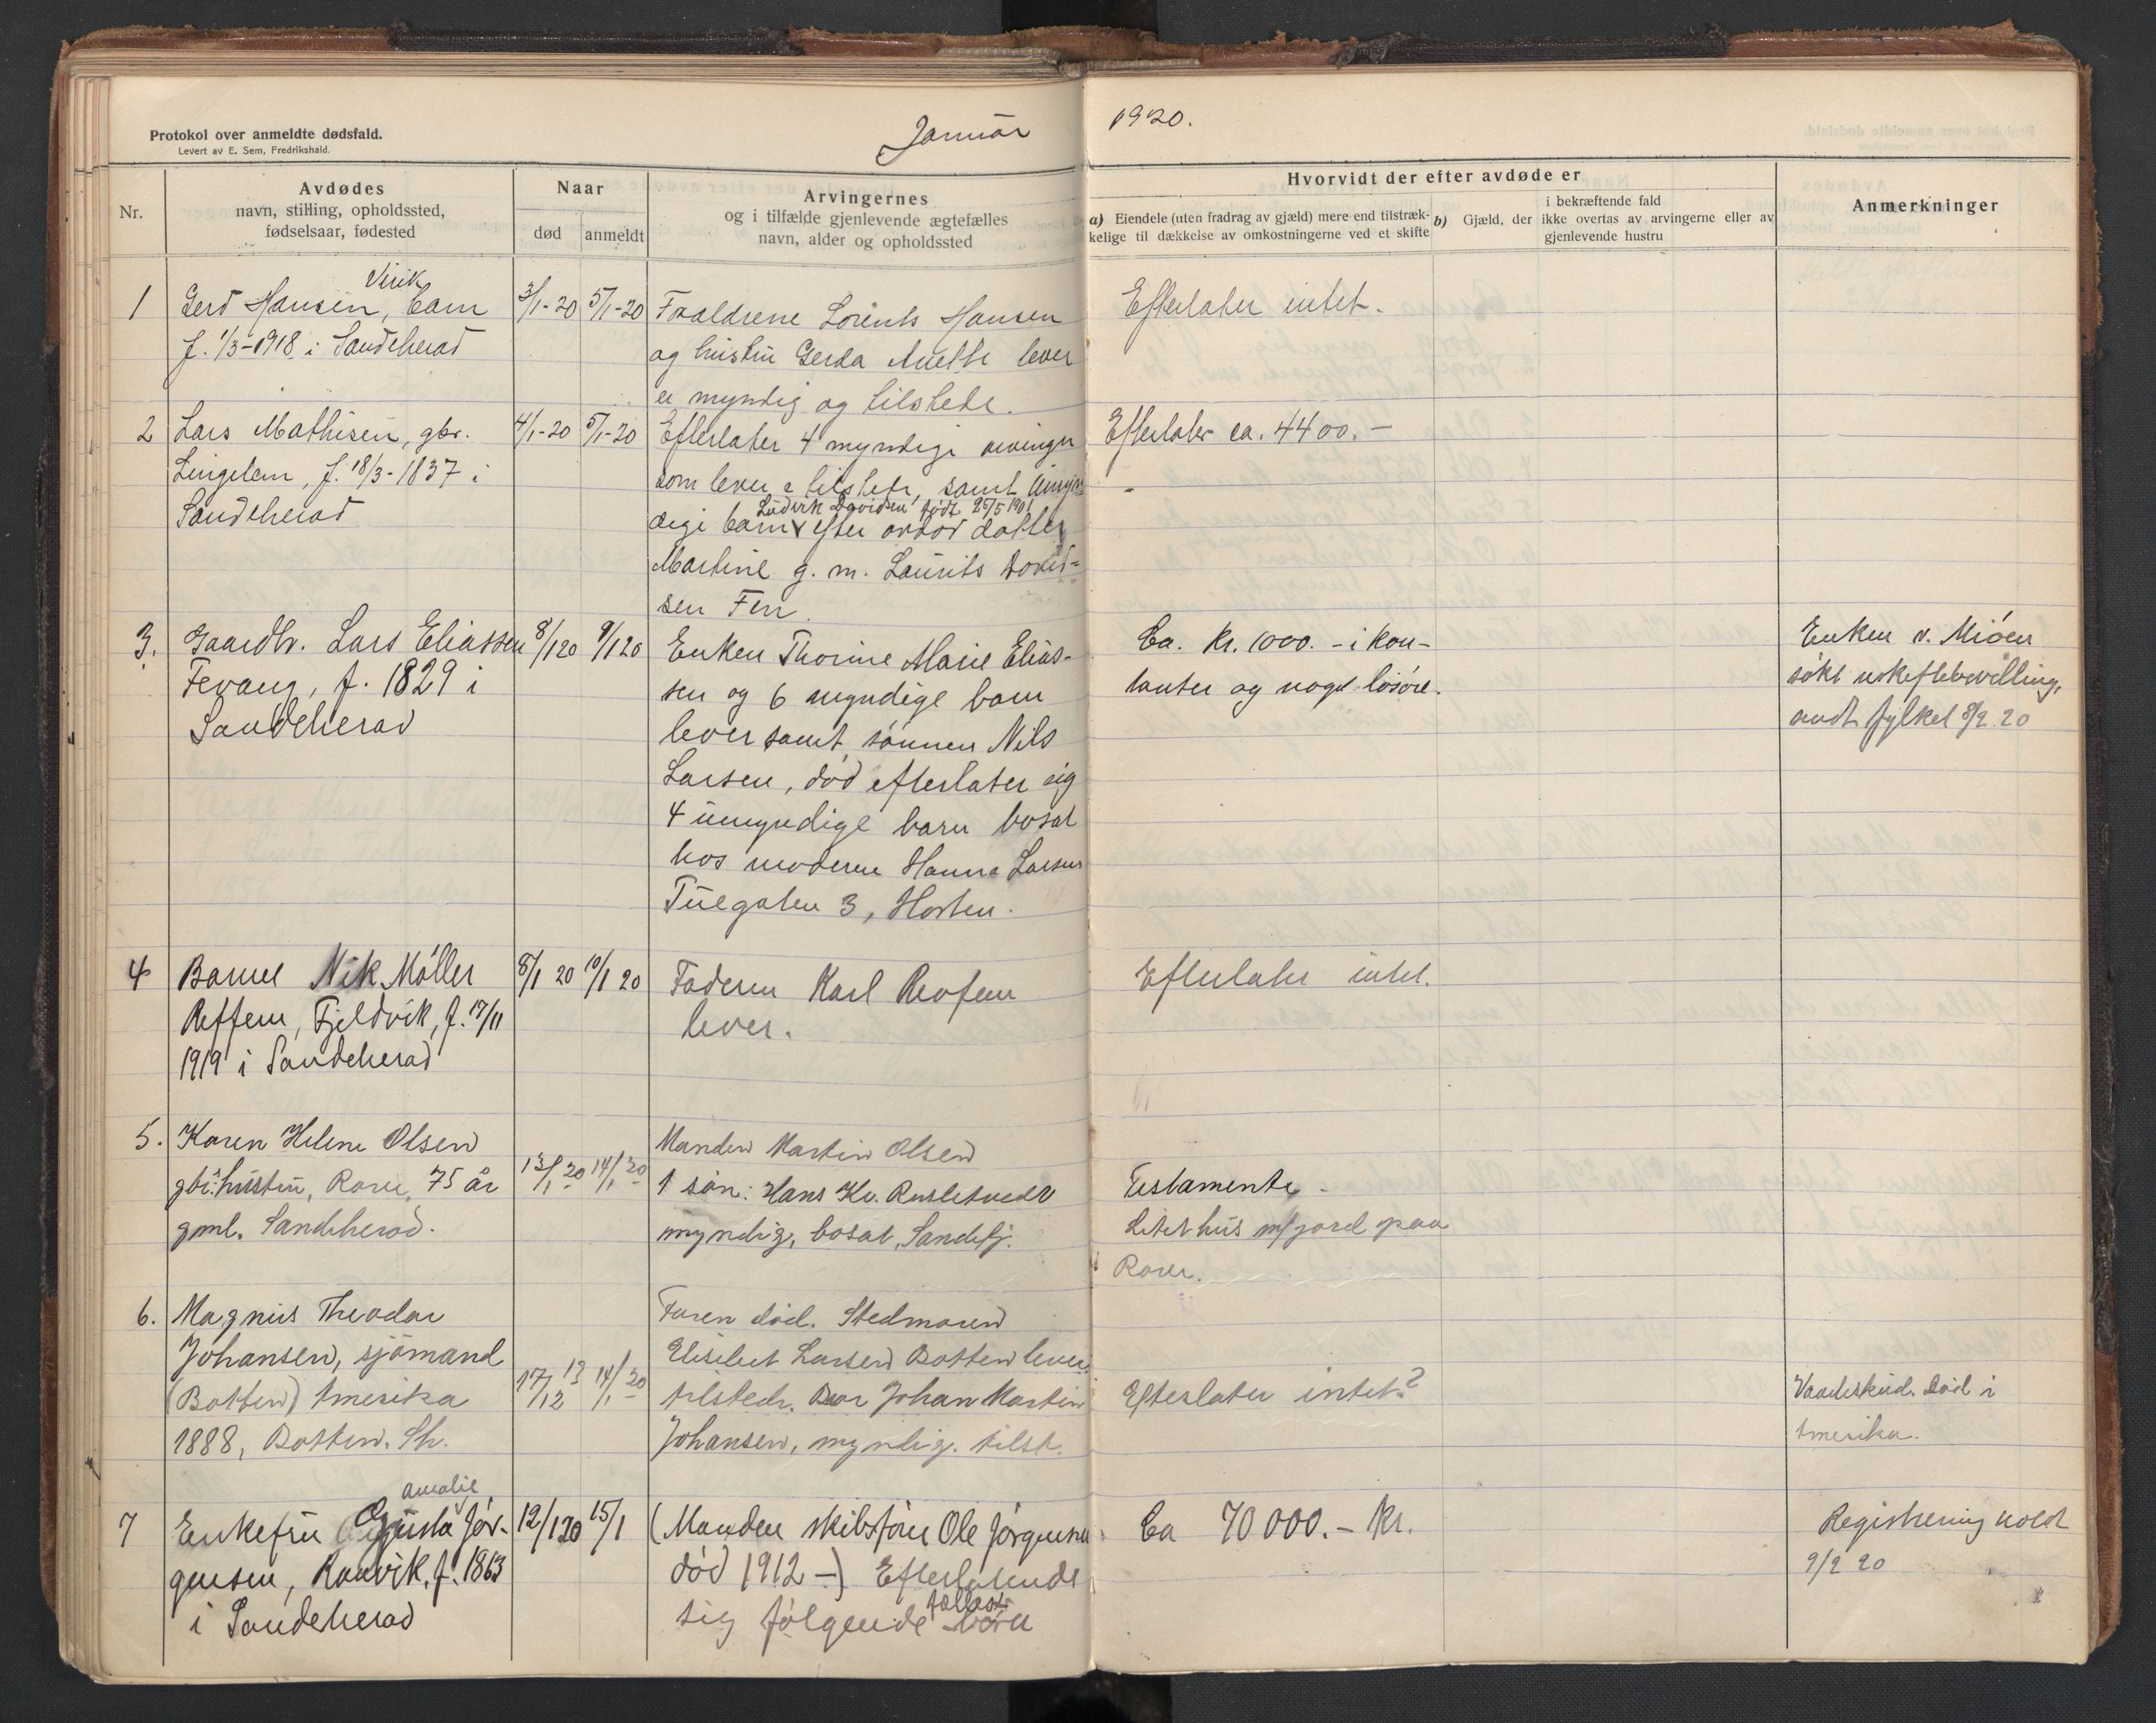 Protokol over anmeldte dødsfald.
Levert av E. Sem, Fredrikshald.
Januar
1920.
Nr.
Avdødes
navn, stilling, opholdssted,
fødselsaar, fødested
Naar
død
anmeldt
Arvingernes
og i tilfælde gjenlevende ægtefælles
navn, alder og opholdssted
Hvorvidt der efter avdøde er
a) Eiendele (uten fradrag av gjæld) mere end tilstræk-
kelige til dækkelse av omkostningerne ved et skifte
b) Gjæld, der
i bekræftende fald
ikke overtas av arvingerne eller av
gjenlevende hustru
Anmerkninger
1
Virik
Gerd Hansen, barn
f. 1/3-1918 i Sandeherad
3/1-20
5/1-20
Foraldrene Lorents Hansen
og hustru Gerda Anette lever
er myndig og tilstede.
Efterlater intet.
2
Lars Mathisen, gbr.
Lingelem, f. 18/3-1837 i
Sandeherad
4/1-20
5/1-20
Efterlater 4 myndige arvinger
som lever e tilstede, samt umyn
Ludvik Davidsen født 25/5 1901
dige barn efter avdød datter
Martine g. m. Laurits David=
sen Fen.
Efterlater ca. 4400.-
3.
Gaardbr. Lars Eliassen
Fevang, f. 1829 i
Sandeherad
8/1 20
9/1 20
Enken Thorine Marie Elias-
sen og 6 myndige barn
lever samt sønnen Nils
Larsen, død efterlater sig
4 umyndige barn bosat
hos moderen Hanna Larsen
Tuegaten 3, Horten.
Ca. kr. 1000.- i kon-
tanter og noget løsøre.
Enken v. Miøen
søkt uskiftebevilling,
andt fylket 8/2 20
4
Barnet Nik Møller
Reffem, Fjeldvik, f. 17/11
1919 i Sandeherad
8/1 20
10/1 20
Faderen Karl
lever.
Efterlater intet.
5.
Karen Helene Olsen
gbr. hustru, 75 år
gml. Sandeherad.
13/1 20
14/1 20
Manden Martin Olsen
1 søn: Hans Kr.
myndig, bosat, Sandefj.
Testamente -
Litet hus m/ jord paa
6.
Magnus Theodor
Johansen, sjømand
(Botten) Amerika
1888, Botten. Sh.
17/12
14/1 20
Faren død. Stedmoren
Elisebet Larsen Botten lever
tilstede. Bror Johan Martin
Johansen, myndig. tilst.
Efterlater intet?
Vaadeskud. Død i
Amerika.
7
amalie
Enkefru Gusta Jør-
gensen, Ranvik, f. 1863
i Sandeherad
12/1 20
15/1
(Manden skibsfører Ole Jørgensen
død 1912 -) Efterlatende
sig følgende børn
Ca 70 000.- kr.
Registrering holdt
9/2 20